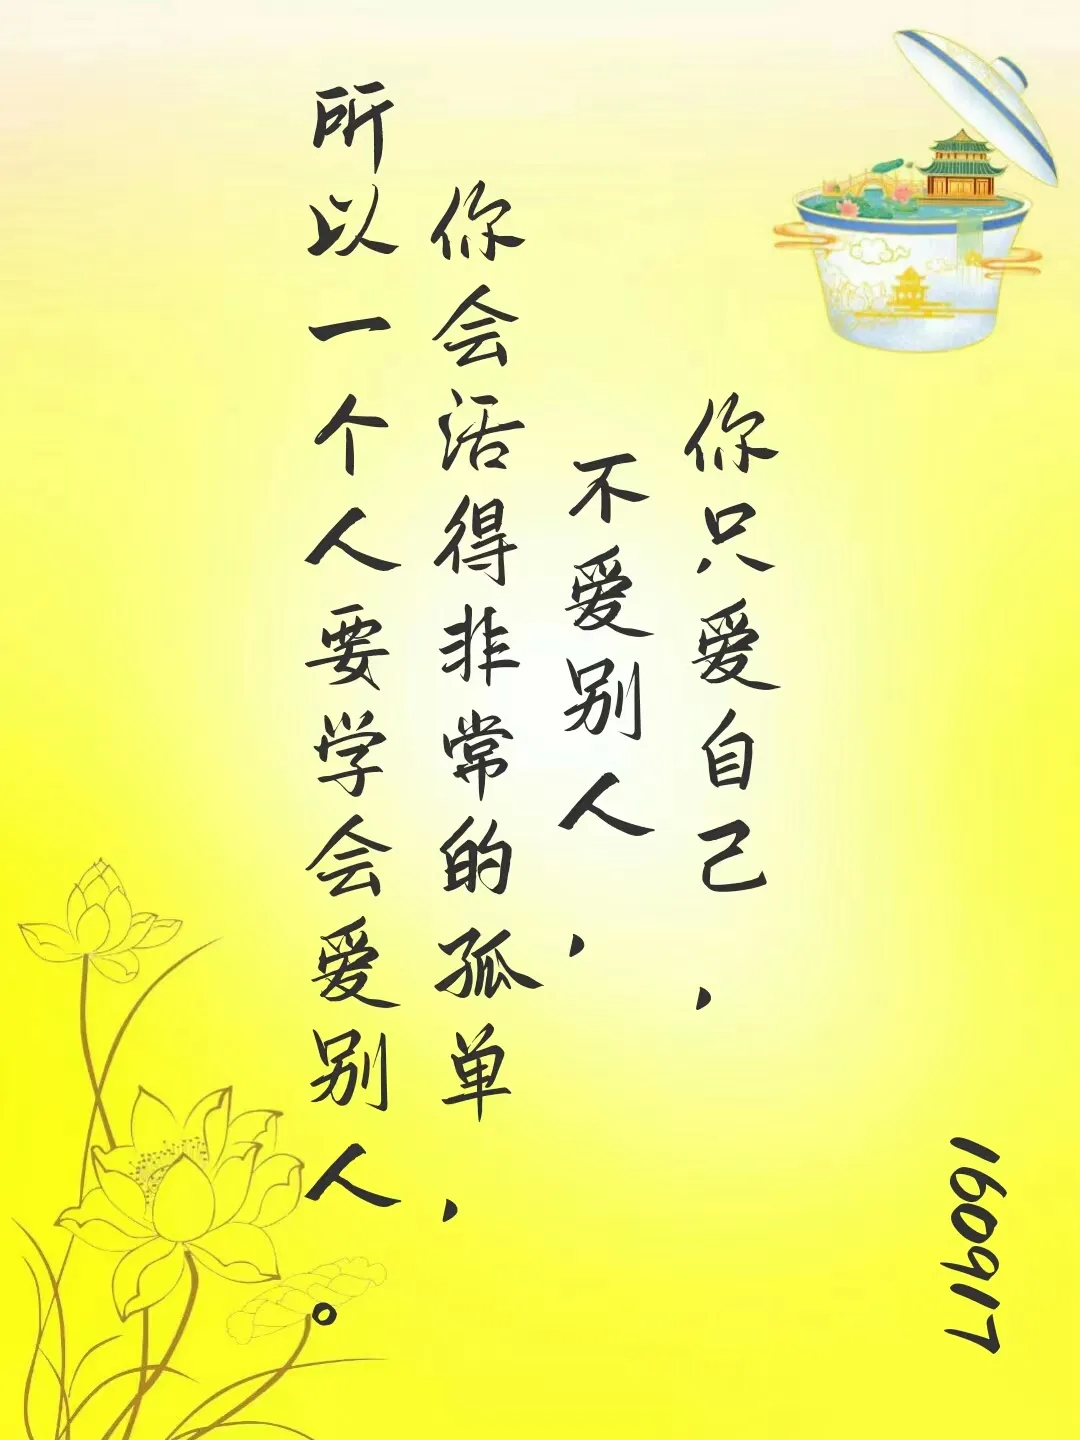 你只爱自己，
不爱别人，
你会活得非常的孤单，
所以一个人要学会爱别人。
160917